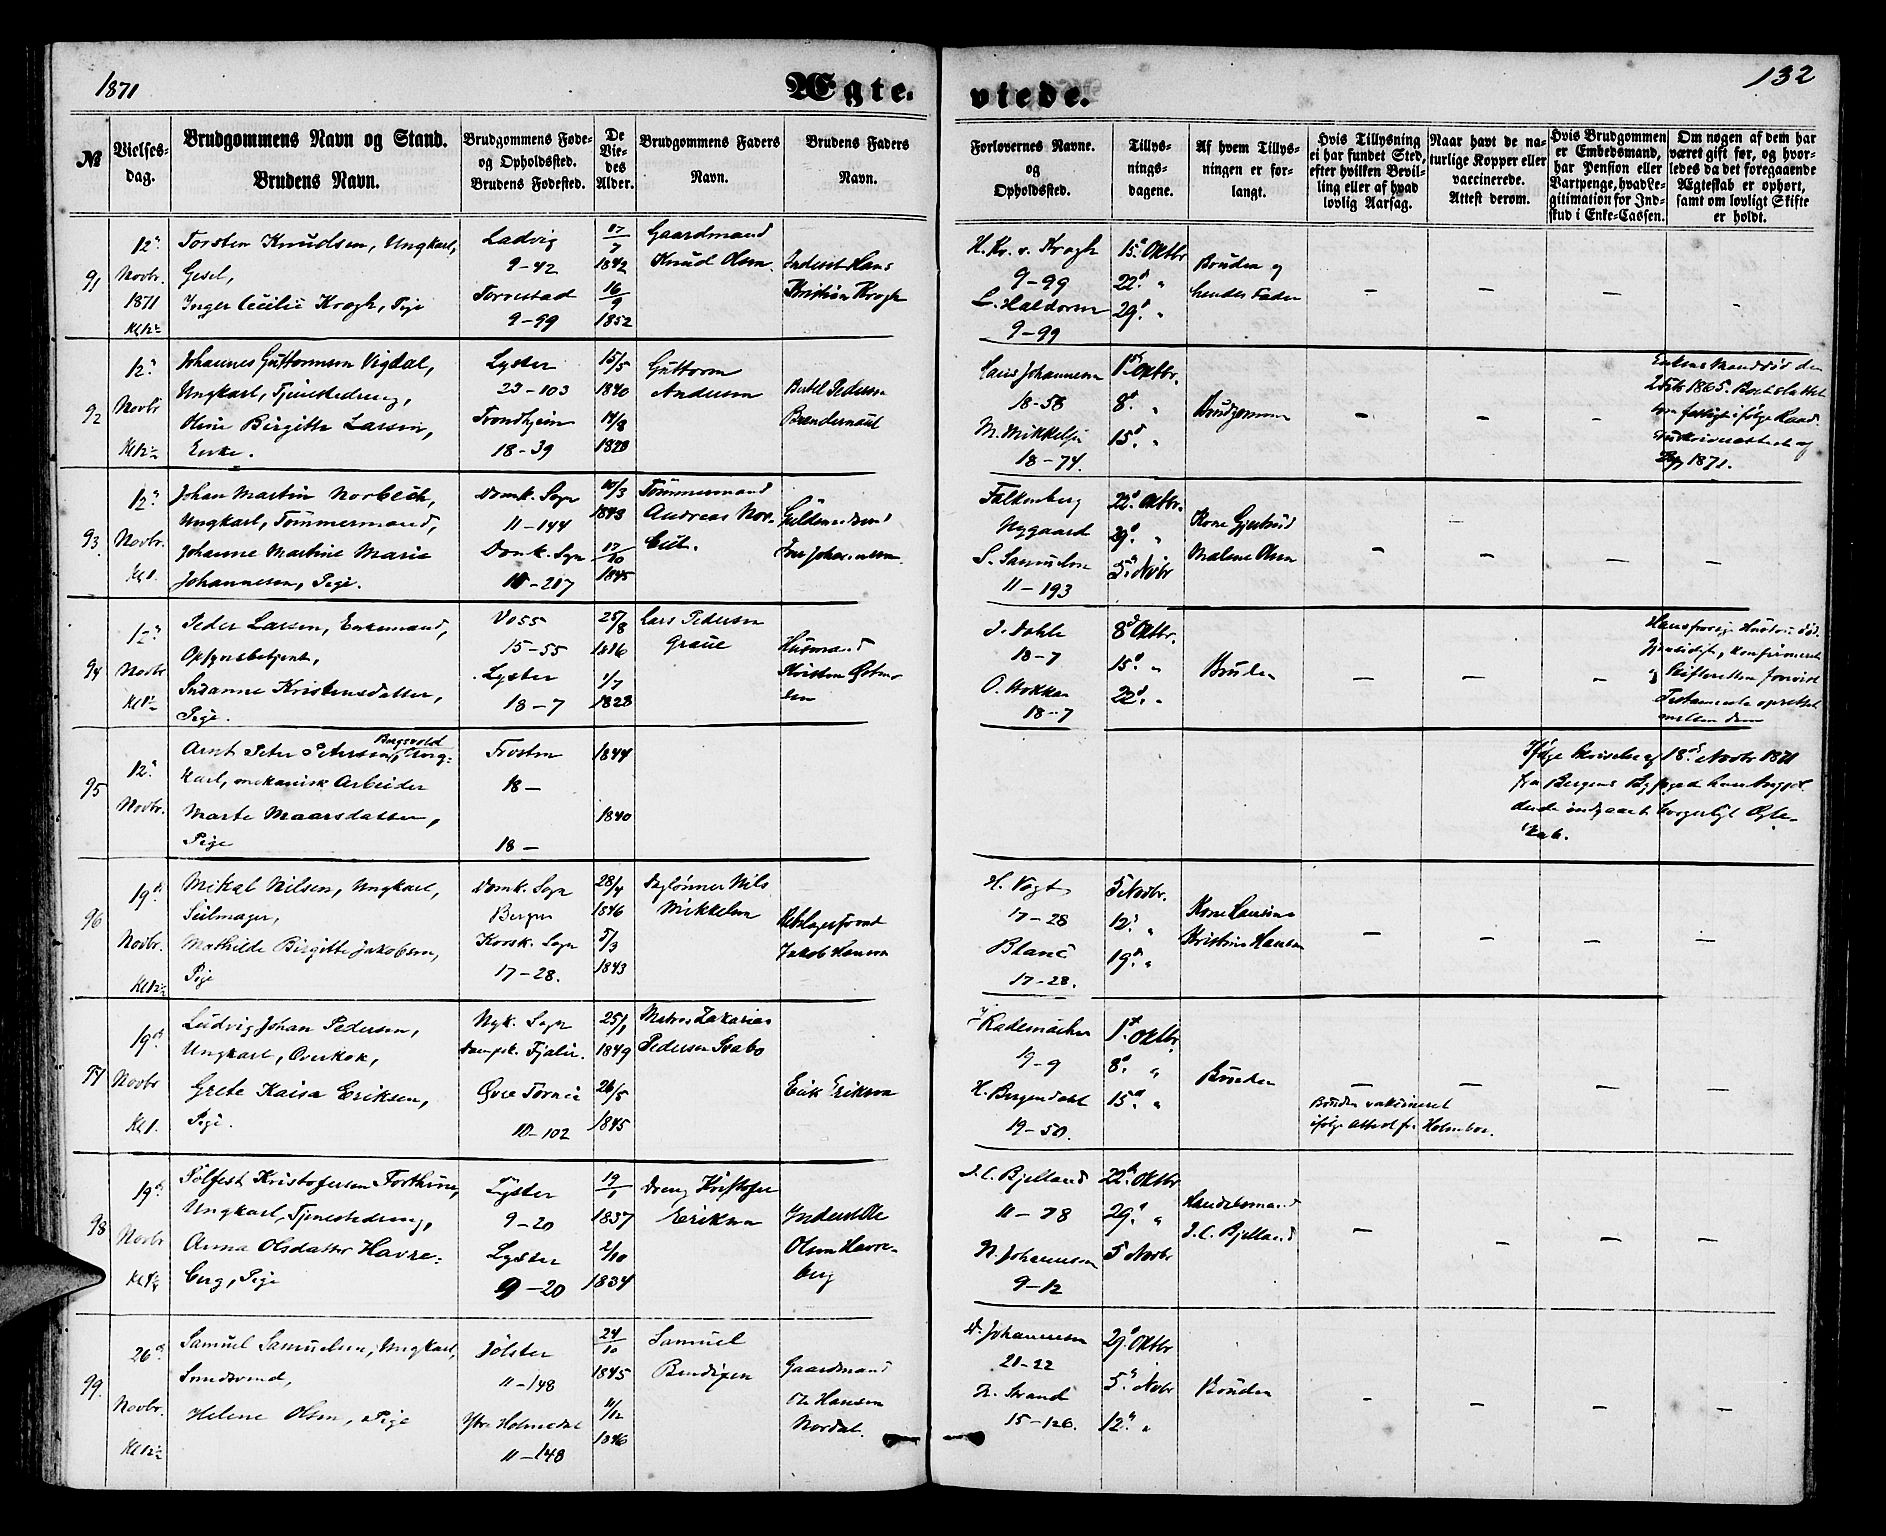 1871
Ægte-
viede.
132
№
Vielses-
dag.
Brudgommens Navn og Stand.
Brudens Navn.
Brudgommens Føde-
og Opholdssted.
Brudens Fødested.
De
Vie-
des
Alder.
Brudgommens Faders
Navn.
Brudens Faders
Navn.
Forlovernes Navne.
og
Opholdssted.
Tillys-
nings-
dagene.
Af hvem Tillys-
ningen er for-
langt.
Hvis Tillysning
ei har fundet Sted,
efter hvilken Bevil-
ling eller af hvad
lovlig Aarsag.
Naar havt de na-
turlige Kopper eller
vaccinerede.
Attest derom.
Hvis Brudgommen
er Embedsmand,
har Pension eller
Vartpenge, hvad Le-
gitimation for Ind-
skud i Enke-Cassen.
Om nogen af dem har
været gift før, og hvor-
ledes da det foregaaende
Ægteskab er ophørt,
samt om lovligt Skifte
er holdt.
91
12te
Novbr
1871
Torsten Knudsen, Ungkarl,
Gesel,
Inger Cecilie Krogh, Pige
Ladvig
9-42
Torvestad
9-99
17/7
1842
16/9
1852
Gaardmand
Knud Olsen
Inderst Hans
Kristian Krogh
H. Kr. v. Krogh
9-99
L. Haldorsen
9-99
15de Oktbr
22de "
29de "
Bruden og
hendes Fader
92
12te
Novbr
Johannes Guttormsen Vigdal,
Ungkarl, Tjenestedreng,
Oline Birgitte Larsen,
Enke.
Lyster
23-103
Trondhjem
18-39
15/5
1840
14/8
1828
Guttorm
Andersen
Bertel Pedersen
Brandernaut
Lars Johannesen
18-58
M. Mikkelsen
18-74.
1ste Oktbr.
8de "
15de "
Brudgommen
93
12te
Novbr.
Kl 1.
Johan Martin Norbech,
Ungkarl, Tømmermand,
Johanne Martine Marie
Johannesen, Pige.
Domk. Sogn
11-144
Domk. Sogn
10-217
10/3
1843
17/10
1845
Tømmermand
Andreas Nor-
bech.
Johannessen
Falkenberg
Nygaard
S. Samuelsen
11-193
22de Oktbr.
29de "
5te Novbr
Kone Gjertrud
Malene Olsen
94
12te
Novbr
Peder Larsen, Enkemand,
Opsynsbetjent,
Susanne Kristensdatter,
Pige.
Voss
15-55
Lyster
18-7
25/8
1816
1/7
1828
Lars Pedersen
Graue
Husmand
Kristen Østmo-
den
J. Dahle
18-7
O. Stokken
18-7
8de Oktbr.
15de "
22de "
Bruden
95
12te
Novbr.
Arnt Peter Petersen Bergsvold, Ung-
karl, mekanisk Arbeider
Marte Maarsdatter,
Pige
Frosten
18-
18-
1844
1840
Ifølge Skrivelse af 18de Novbr 1871
fra Bergens Byfoged have Angjæl-
dende indgaaet borgerligt Ægte-
skab.
96
19de
Novbr.
Mikal Nilsen, Ungkarl,
Seilmager,
Mathilde Birgitte Jakobsen,
Pige
Domk. Sogn
Bergen
Korsk. Sogn
17-28.
28/4
1846
5/3
1843
Daglønner Nils
Mikkelsen
Jakob Hansen
H. Vogt
17-28
Blanc
17-28.
5te Novbr.
12te "
19de "
Kone Hansine
Kristine Hansen
97
19de
Novbr
Kl 1.
Ludvig Johan Pedersen,
Ungkarl, Overkok,
Grete Kaisa Eriksen,
Pige.
Nyk. Sogn
Dampsk. Fjalir.
Øvre Tornio
10-102
25/1
1849
26/5
1845
Matros Zakarias
Pedersen Svabo
Erik Eriksen
Rademacher
19-9
H. Bergendahl
19-50.
1ste Oktbr.
8de "
15de "
Bruden
Bruden vaksineret
ifølge Attest fra Holmboe.
98
19de
Novbr
Sølfest Kristofersen Forthun,
Ungkarl, Tjenestedreng,
Anna Olsdatter Havre-
berg, Pige
Lyster
9-20
Lyster
9-20
19/1
1837
2/10
1834
Dreng Kristofer
Eriksen
Inderst Ole
Olsen Havre-
berg
J. C. Bjelland
11-78
N. Johannesen
9-12
22de Oktbr
29de "
5te Novbr
Handelsmand
J. C. Bjelland
99.
26de
Novbr.
Samuel Samuelsen, Ungkarl,
Helene Olsen, Pige
Jølster
11-148
Ytre Holmedal
11-148
24/10
1845
11/12
1846
Samuel
Bendixen
Gaardmand
Ole Hansen
Nordal.
Johannesen
21-22
N. Strand
15-126.
29de Oktbr
5te Novbr
12te "
Bruden